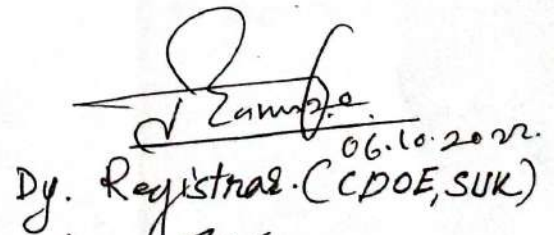 06.10.2022.
Dy. Registrar. (CDOE, SUK)